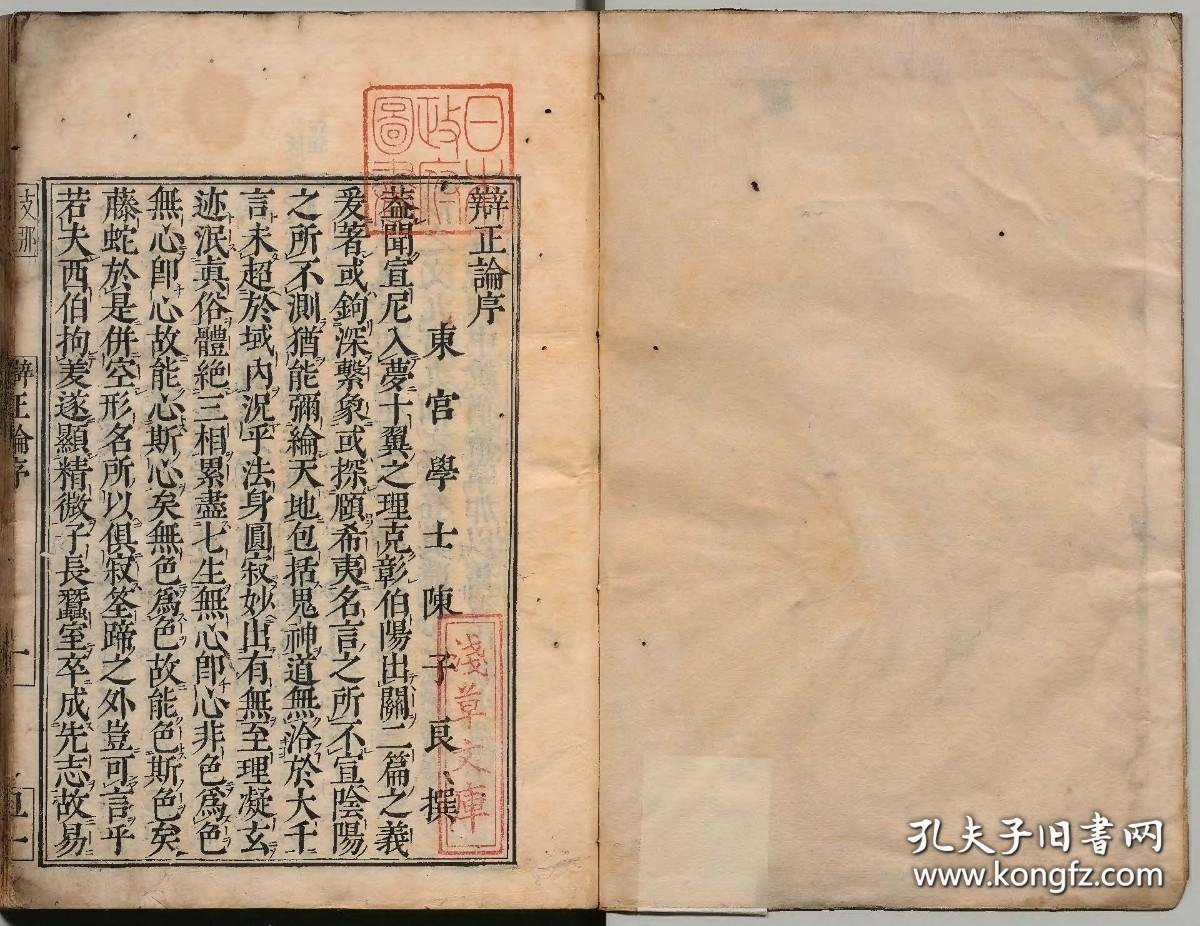 辯正論序
東宮學士陳子良撰
蓋聞宣尼入夢十翼之理克彰伯陽出關二篇之義
爰著或鉤深繫象或探賾希夷名言之所不宣陰陽
之所不測猶能彌綸天地包括鬼神道無洽於大千
言未超於域內況乎法身圓寂妙出有無至理凝玄
迹泯真俗體絕三相累盡七生無心卽心非色爲色
無心卽心故能心斯心矣無色爲色故能色斯色矣
藤蛇於是併空形名所以俱寂筌蹄之外豈可言乎
若夫西伯拘羑遂顯精微子長蠶室卒成先志故易
支那
辯正論序
一
日本政府圖書
淺草文庫
孔夫子旧书网
www.kongfz.com